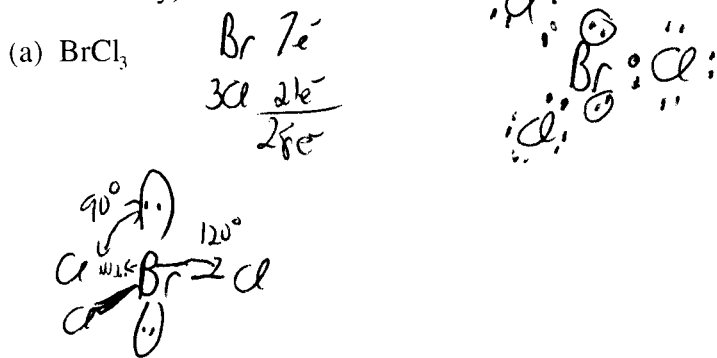 (a) BrCl₃
Br 7e⁻
3Cl 21e⁻
28e⁻
Cl
Br Cl
Cl
90°
120°
Cl Br Cl
Cl